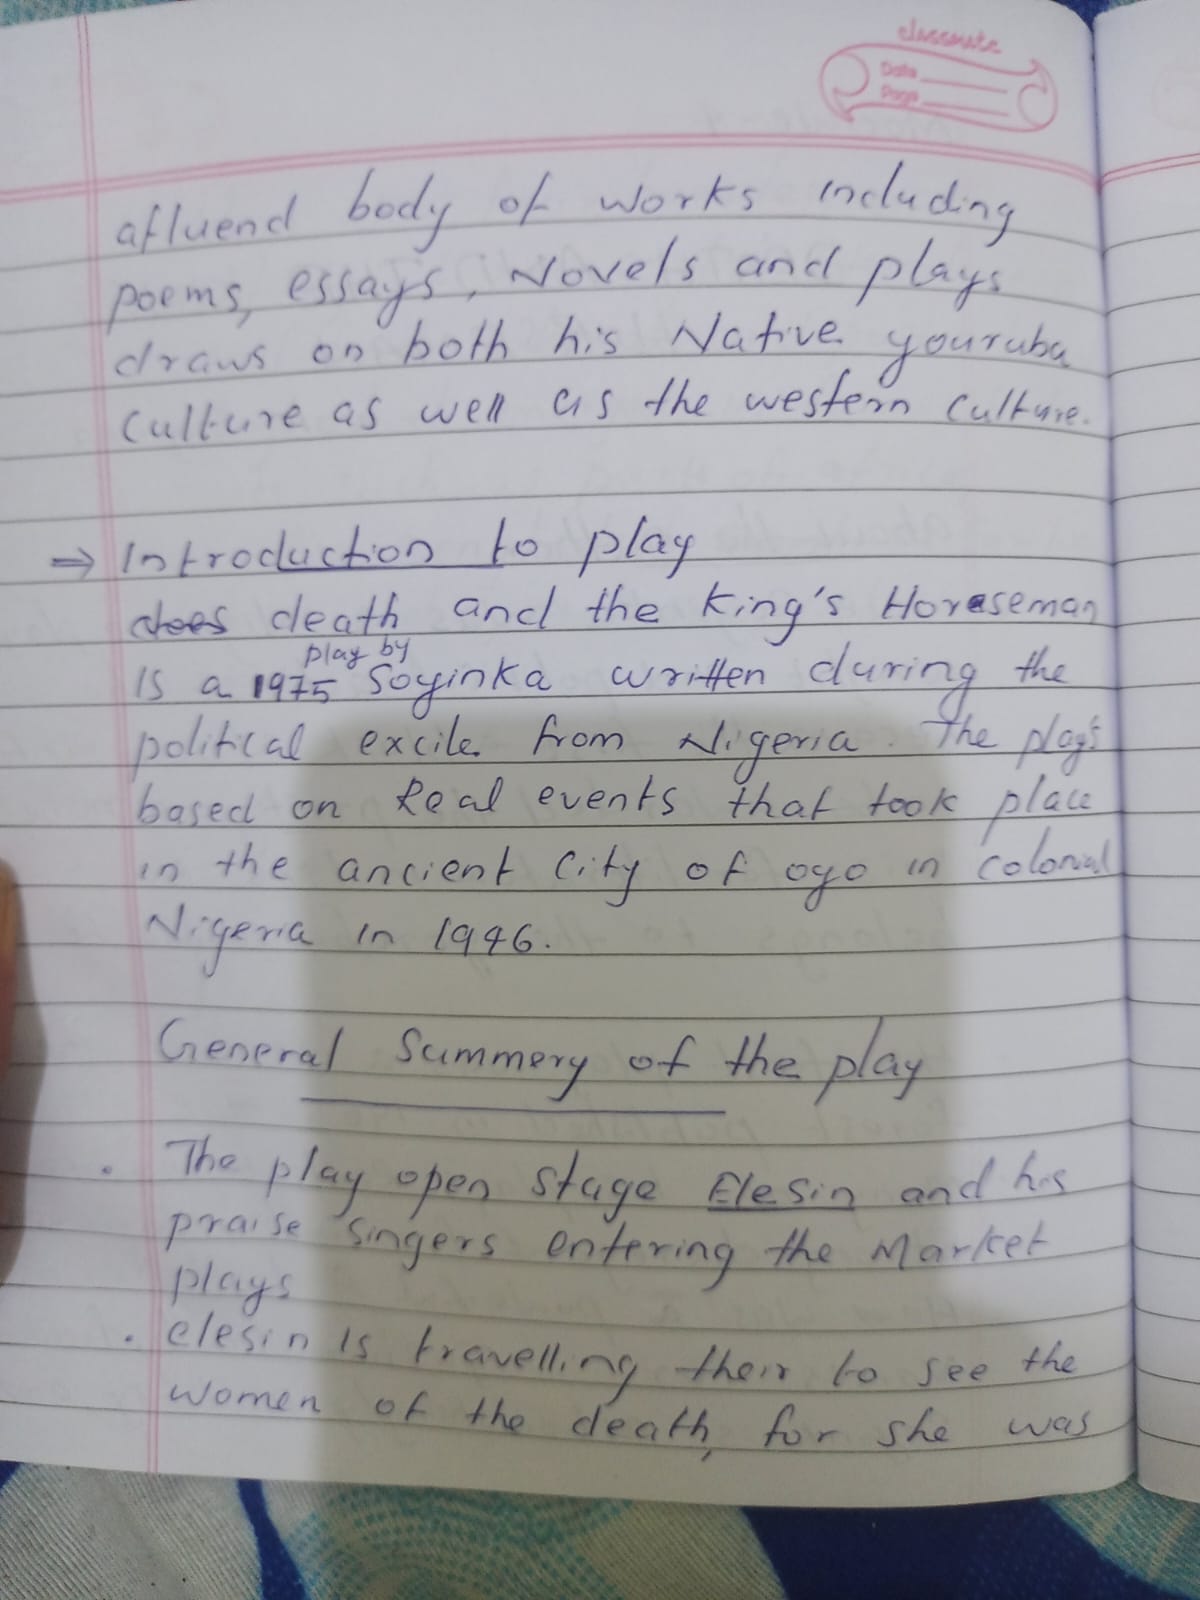 classmate
Date
Page
afluend body of works including
poems, essays, Novels and plays
draws on both his Native youruba
culture as well as the western culture.
⇒ Introduction to play
does death and the King's Horseman
play by
is a 1975 Soyinka written during the
political excile from Nigeria. The play's
based on Real events that took place
in the ancient city of oyo in colonial
Nigeria in 1946.
General Summery of the play
. The play open stage Elesin and his
praise singers entering the Market
plays
. elesin is travelling their to see the
women of the death, for she was